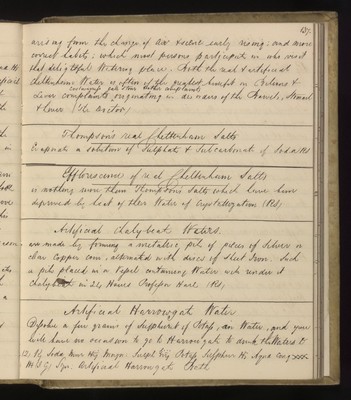 137.
arising from the change of air & exercise early rising, and more
correct habits; which most persons participate in who visit
that delightful Watering place. Both the real & artificial
Cheltenham Water is often of the greatest benefit in Bilious &
Liver complaints, originating in disease of the Bowels, Stomach
& Liver (the Doctor)
Thompson's real Cheltenham Salts
Evaporate a solution of Sulphate & Subcarbonate of Soda Rs
Efflorescence of real Cheltenham Salts
is nothing more than Thompson's Salts which have been
deprived by heat of their Water of Crystallization (Rs)
Artificial chalybeat Waters.
are made by forming a metallic pile of pieces of Silver or
clean Copper coin, alternated with discs of sheet Iron. Such
a pile placed in a vessel containing Water will render it
Chalybeat in 24 Hours Professor Hare (Rs)
Artificial Harrowgate Water
Dissolve a few grains of Sulphuret of Potass, in Water, and you
will have no occasion to go to Harrowgate to drink the Waters
Artificial Harrowgate Bath